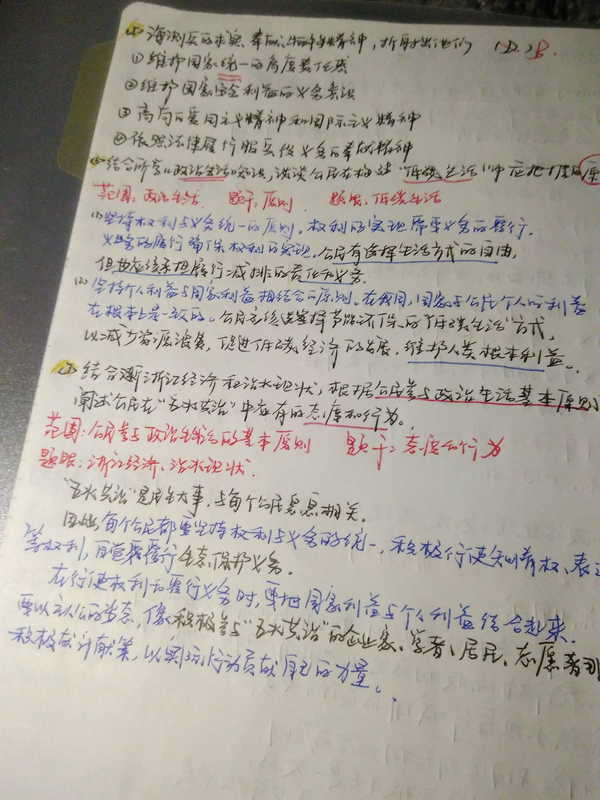 海测兵的求实、奉献、协作的精神,折射出他们 (D) B.
①维护国家统一的高度责任感
②维护国家安全利益的义务意识
③高尚的爱国主义精神和国际主义精神
④依照法律履行服兵役义务的奉献精神
结合所学《政治生活》知识,谈谈公民在相^让"低碳生活"中应把握的原
范围:政治生活 题干:原则 题眼:低碳生活
(1)坚持权利与义务统一的原则。权利的实现需要义务的履行,
义务的履行确保权利的实现。公民有选择生活方式的自由,
但也应该承担履行减排的责任和义务。
(2)坚持个人利益与国家利益相结合的原则。在我国,国家与公民个人的利益
在根本上是一致的。公民主动选择节能环保的"低碳生活"方式,
以减少资源浪费,促进低碳经济的发展,维护人类根本利益。
结合浙江经济和治水现状,根据公民参与政治生活基本原则
阐述公民在"五水共治"中应有的态度和行为。
范围:公民参与政治生活的基本原则 题干:态度和行为
题眼:浙江经济、治水现状.
"五水共治"是民生大事,与每个公民息息相关。
因此每个公民都要坚持权利与义务的统一,积极行使知情权、表达
等权利,自觉履行生态保护义务。
在行使权利和履行义务时,要把国家利益与个人利益结合起来。
要以主人公的姿态,像积极参与"五水共治"的企业家、学者、居民、志愿者
积极献计献策,以实际行动贡献自己的力量。